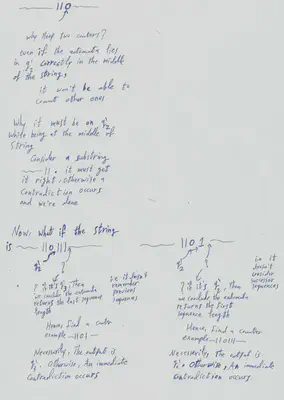 ~110
why keep two counters?
even if the automata lies
in q' correctly in the middle
of the string,
it won't be able to
count other ones
Why it must be on q'₂
while being at the middle of
String
Consider a substring
~11. it must get
it right, otherwise a
contradiction occurs
and we're done
Now: what if the string
is ~110111~
q'₂ ?
? if it's q'₃, Then
we conclude the automata
returns the last sequence
length
i.e it doesn't
remember
previous
sequences
Hence, find a counter
example ~1101~
Necessarily, The output is
q'. Otherwise, An immediate
contradiction occurs
~1101~
q'₂ ?
? if it's q', Then
we conclude the automata
returns the first
sequence length
i.e it
doesn't
consider
successor
sequences
Hence, find a counter
example ~110111~
Necessarily, The output is
q'. Otherwise, An immediate
contradiction occurs